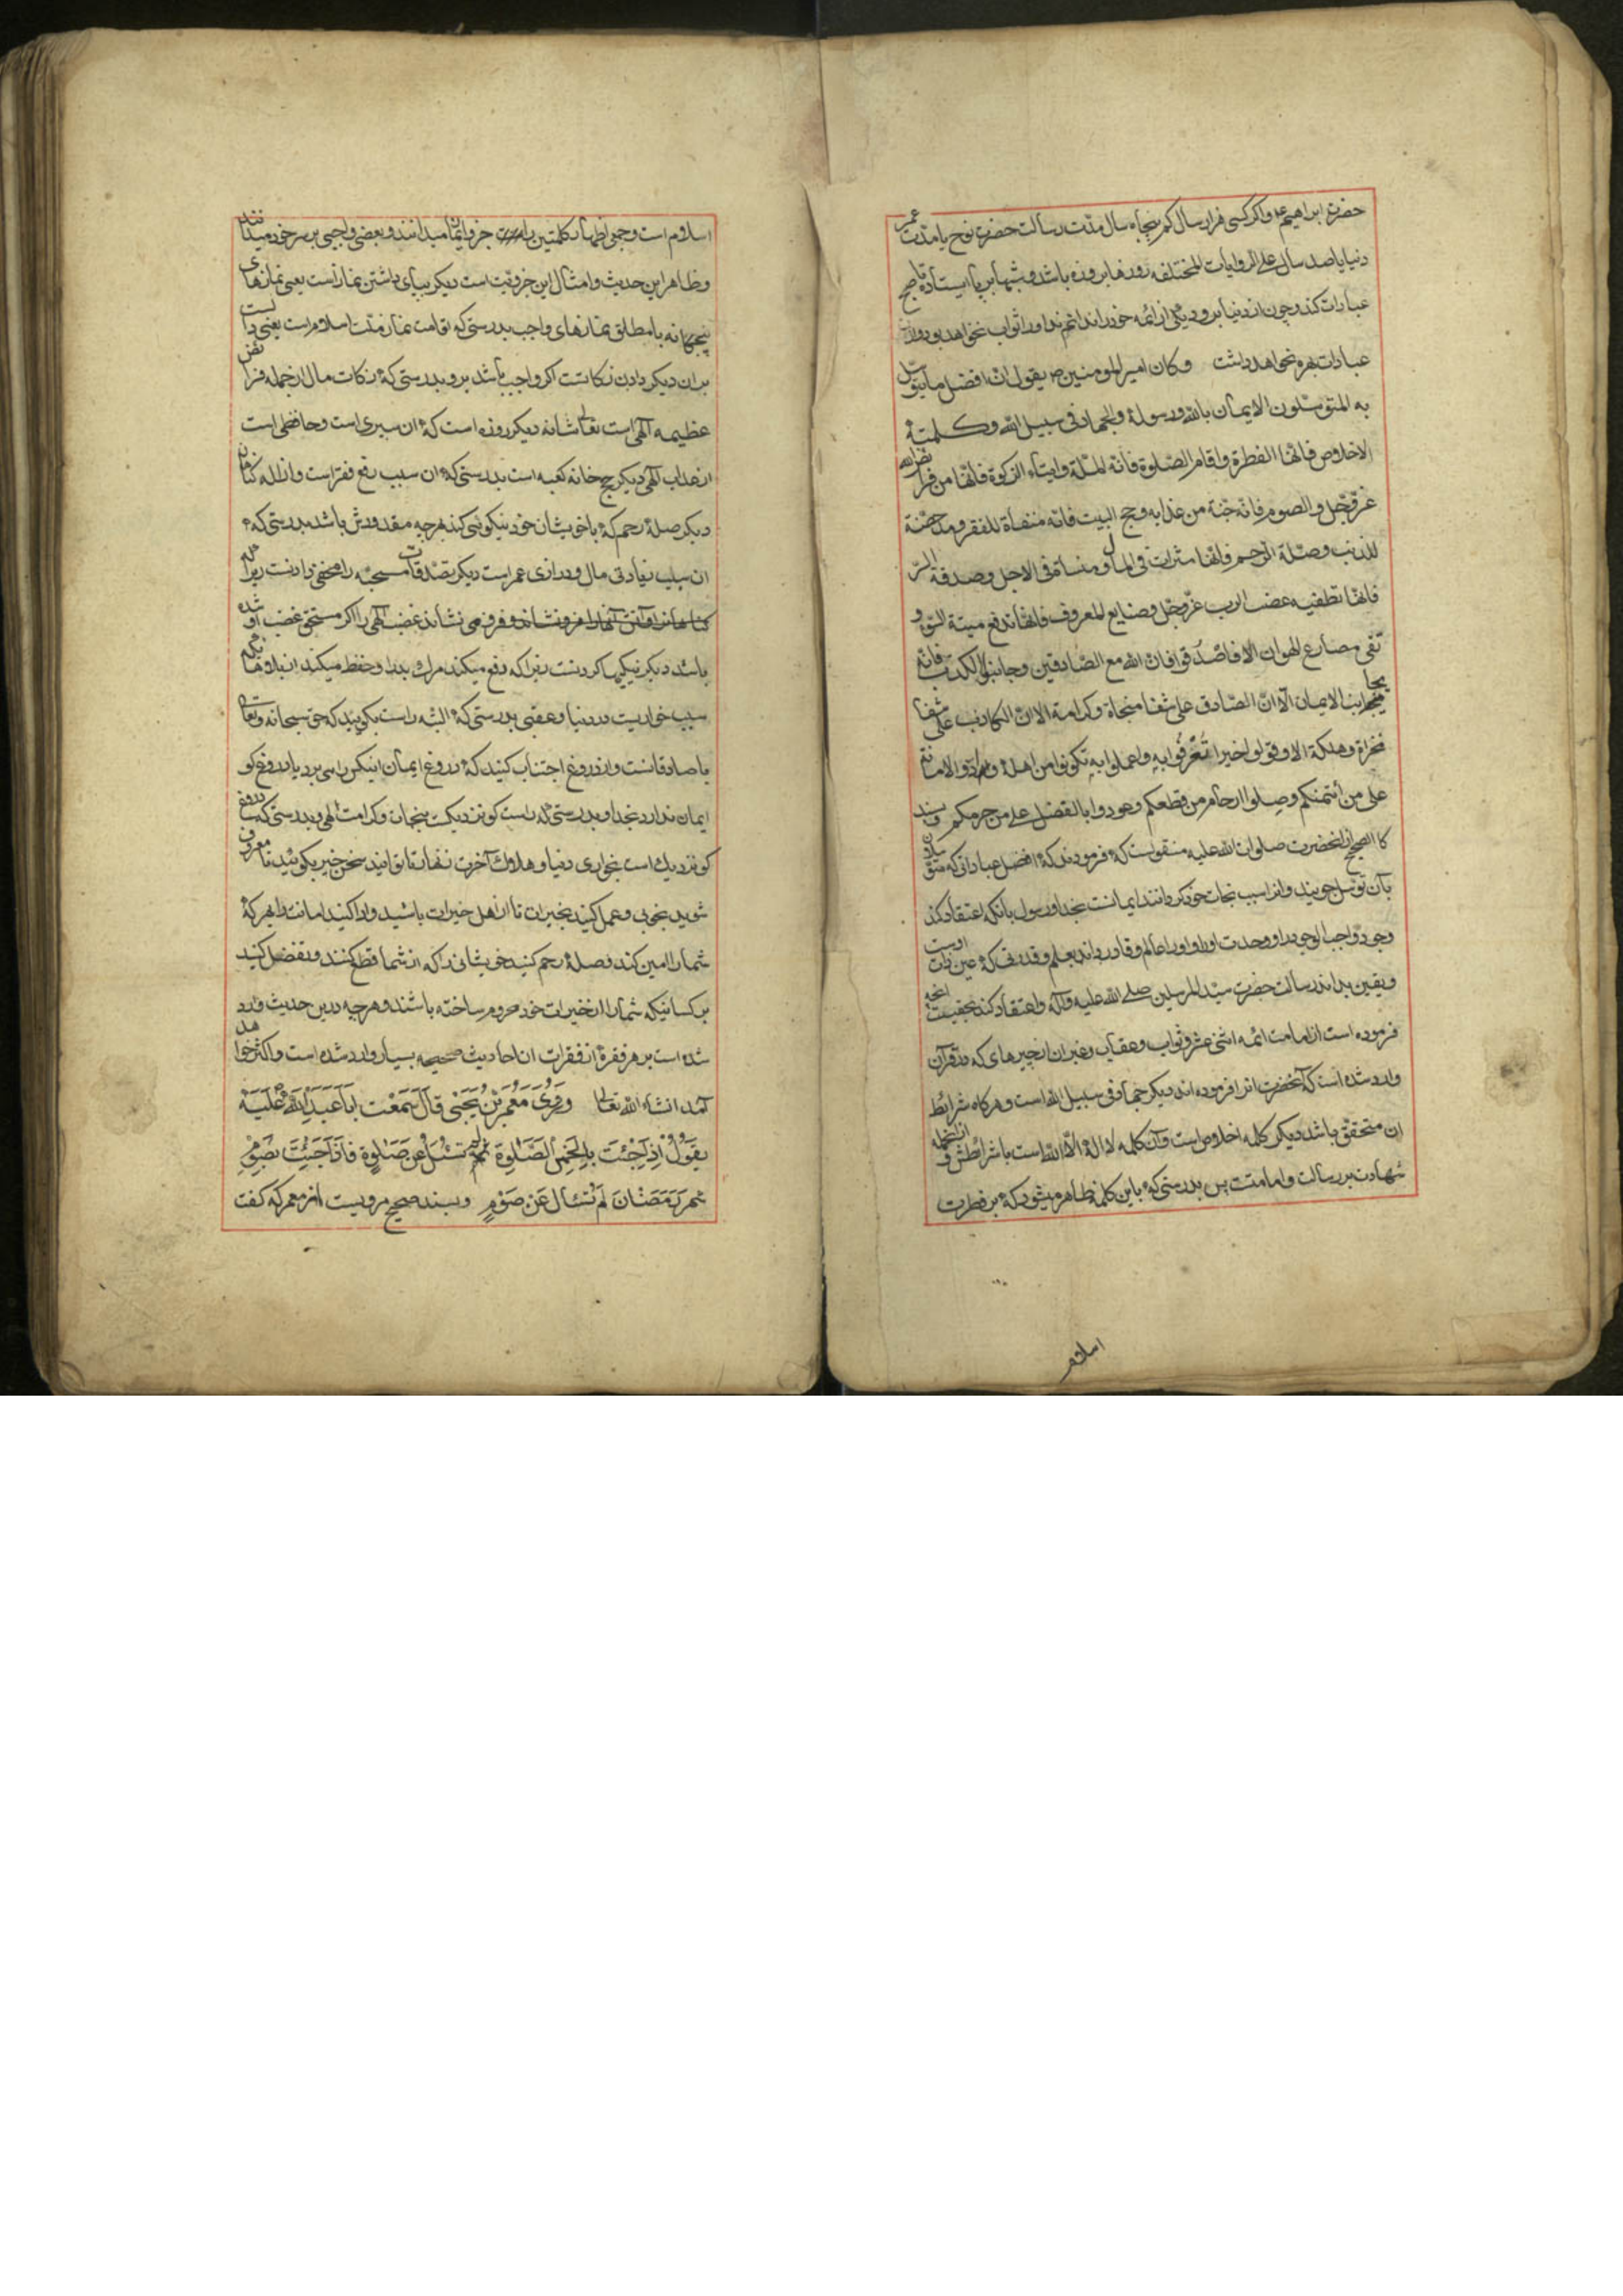 حضرت ابراهیم ع واکر کسی هزار سال کم پنجاه سال مدت رسالت حضرت نوح یا مدت عمر
دنیا یا صد سال علی الروایات المختلفه روزها بروزه باشد وشبها بر پا ایستاده
عبادات کند وچون از دنیا برود ویکی از ائمه خود را نداند انهم نداو را ثواب نخواهد بود واز
عبادات بهره نخواهد داشت وکان امیر المومنین ص یقول ان افضل ما یتوسل
به المتوسلون الایمان بالله ورسوله والجهاد فی سبیل الله وکلمة
الاخلاص فانها الفطرة واقام الصلوة فانه الملة وایتاء الزکوة فانها من فرائض الله
عز وجل والصوم فانه جنة من عذابه وحج البیت فانه منفاة للفقر ومدحضة
للذنب وصلة الرحم فانها مثراة فی المال ومنساة فی الاجل وصدقة السر
فانها تطفیه غضب الرب عز وجل وصنایع المعروف فانها تدفع میتة السوء و
تقی مصارع الهوان الا فاصدقوا فان الله مع الصادقین وجانبوا الکذب فانه
یجانب الایمان الا ان الصادق علی شفا منجاة وکرامة الا ان الکاذب علی شفا
مخزاة وهلکة الا وقولوا خیرا تعرفوا به واعملوا به تکونوا من اهله وادوا الامانة
علی من أئتمنکم وصلوا ارحام من قطعکم وعودوا بالفضل علی من حرمکم وبسند
کا الصحیح از انحضرت صلوات الله علیه منقولست که فرمودند که افضل عباداتی که متوسلان
بآن توسل جویند وانرا سبب نجات خود کردانند ایمانست بخدا ورسول بانکه اعتقاد کند
وجود واجب الوجود را ووحدت او را واو را عالم وقادر داند بعلم وقدرتی که عین ذات اوست
ویقین بداند رسالت حضرت سید المرسلین صلی الله علیه وآله واعتقاد کند بحقیت انچه
فرموده است از امامت ائمه اثنی عشر وثواب وعقاب وغیر ان از چیزهای که در قرآن
وارد شده است که آنحضرت انرا فرموده اند دیکر جهاد فی سبیل الله است وهرکاه شرایط
ان متحقق باشد دیکر کلمه اخلاص است وآن کلمه لا اله الا الله است با شرائطش وازانجمله
شهادت برسالت وامامتست پس بدرستی که باین کلمه ظاهر میشود که بر فطرت
اسلام
اسلام است وجمعی اظهار کلمتین را جزو ایمان میدانند وبعضی واجبی بر سر خود میدانند
وظاهر این حدیث وامثال این جزویت است دیکر بپای داشتن نماز است یعنی نمازهای
پنجکانه یا مطلق نمازهای واجب بدرستی که اقامت نماز ملت اسلام است یعنی
بدان دیکر دادن زکاتست اکر واجب باشد برو بدرستی که زکات مال از جمله فرائض
عظیمه الهی است تعالی شانه دیکر روزه است که ان سپری است وحافظی است
از عذاب الهی دیکر حج خانه کعبه است بدرستی که ان سبب رفع فقر است وازاله کناهان
دیکر صلهٔ رحم که با خویشان خود نیکویی کند هر چه مقدورش باشد بدرستی که
ان سبب زیادتی مال ودرازی عمر است دیکر تصدقات مستحبه را مخفی دادنست زیرا که
کناهان را وآتش آنها را فرونشاند وفرو می نشاند غضب الهی را اکر مستحق غضب او شده
باشد دیکر نیکیها کردنست زیرا که دفع میکند مرک بد را وحفظ میکند از بلاها
سبب خواریست در دنیا وعقبی بدرستی که البته راست بکویید که حق سبحانه وتعالی
با صادقانست واز دروغ اجتناب کنید که دروغ ایمان را میبرد یا دروغ کو
ایمان ندارد بخدا وبدرستی که راست کو نزدیکست بنجات وکرامت الهی وبدرستی که دروغ
کو نزدیک است بخواری دنیا وهلاک آخرت زنهار تا توانید سخن خیر بکوئید تا معروف
شوید بخوبی وعمل کنید بخیرات تا از اهل خیرات باشید وادا کنید امانت را هر که
شما را امین کند وصلهٔ رحم کنید خویشانی را که از شما قطع کنند وتفضل کنید
بر کسانیکه شما را از خیرات خود محروم ساخته باشند وهر چه درین حدیث وارد
شده است بر هر فقرهٔ از فقرات ان احادیث صحیحه بسیار وارد شده است واکثر خواهد
آمد انشاء الله تعالی وروی معمر بن یحیی قال سمعت ابا عبد الله علیه
یقول اذا جئت بالخمس الصلوة لم تسئل عن صلوة فاذا جئت بصوم
شهر رمضان لم تسئال عن صوم وبسند صحیح مرویست از معمر که کفت